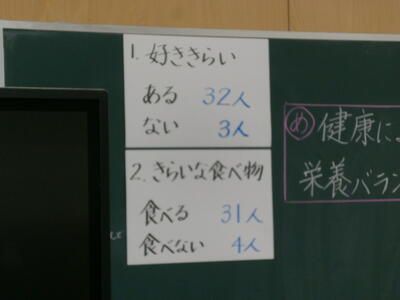 1. 好ききらい
ある 32人
ない 3人
2. きらいな食べ物
食べる 31人
食べない 4人
め 健康に
栄養バラン